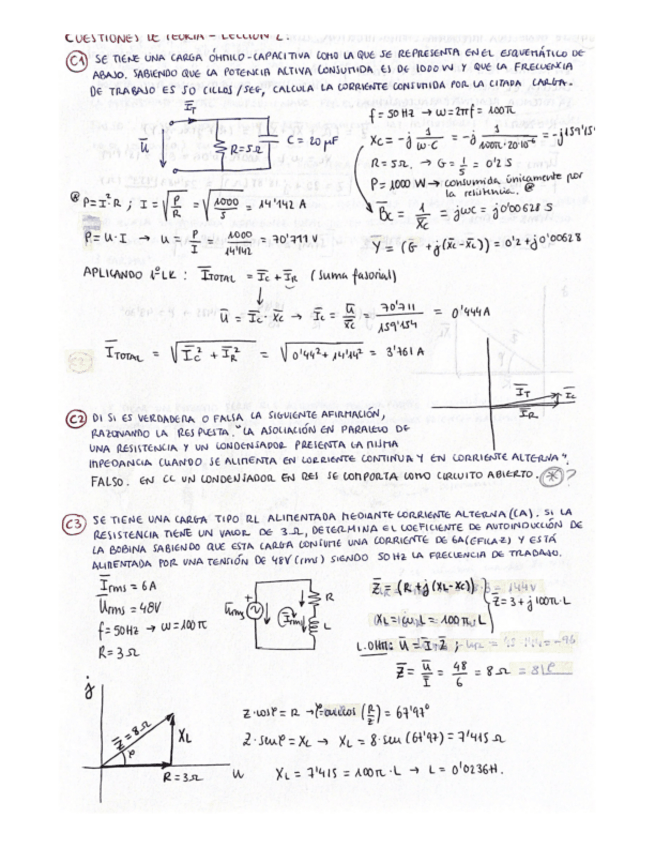 CUESTIONES DE TEORÍA - LECCIÓN 2.
C1 SE TIENE UNA CARGA ÓHMICO-CAPACITIVA COMO LA QUE SE REPRESENTA EN EL ESQUEMÁTICO DE
ABAJO. SABIENDO QUE LA POTENCIA ACTIVA CONSUMIDA ES DE 1000 W Y QUE LA FRECUENCIA
DE TRABAJO ES 50 CICLOS/SEG, CALCULA LA CORRIENTE CONSUMIDA POR LA CITADA CARGA.
I̅T
U̅
R=5Ω
C = 20 µF
f = 50 Hz → ω=2πf = 100π
Xc = -j 1/(ω·C) = -j 1/(100π·20·10⁻⁶) = -j159'15
R = 5Ω → G = 1/5 = 0'2 S
P = 1000 W → consumida únicamente por
la resistencia. @
B̅c = 1/X̅c = jωc = j0'00628 S
Y̅ = (G + j(x̅L-x̅c)) = 0'2+j0'00628
@ P=I²·R ; I = √(P/R) = √(1000/5) = 14'142 A
P = U·I → U = P/I = 1000/14'142 = 70'711 V
APLICANDO 1ºLK : I̅TOTAL = I̅c + I̅R (Suma fasorial)
U̅ = I̅c·X̅c → I̅c = U̅/X̅c = 70'711/159'154 = 0'444A
I̅TOTAL = √(I̅c² + I̅R²) = √(0'44² + 14'14²) = 3'761 A
I̅T
I̅c
I̅R
C2 DI SI ES VERDADERA O FALSA LA SIGUIENTE AFIRMACIÓN,
RAZONANDO LA RESPUESTA. "LA ASOCIACIÓN EN PARALELO DE
UNA RESISTENCIA Y UN CONDENSADOR PRESENTA LA MISMA
IMPEDANCIA CUANDO SE ALIMENTA EN CORRIENTE CONTINUA Y EN CORRIENTE ALTERNA".
FALSO. EN CC UN CONDENSADOR EN RES SE COMPORTA COMO CIRCUITO ABIERTO. * ?
C3 SE TIENE UNA CARGA TIPO RL ALIMENTADA MEDIANTE CORRIENTE ALTERNA (CA). SI LA
RESISTENCIA TIENE UN VALOR DE 3Ω, DETERMINA EL COEFICIENTE DE AUTOINDUCCIÓN DE
LA BOBINA SABIENDO QUE ESTA CARGA CONSUME UNA CORRIENTE DE 6A (EFICAZ) Y ESTÁ
ALIMENTADA POR UNA TENSIÓN DE 48V (rms) SIENDO 50 HZ LA FRECUENCIA DE TRABAJO.
I̅rms = 6A
U̅rms = 48V
f = 50Hz → ω=100π
R = 3Ω
U̅rms
I̅rms
R
L
Z̅ = (R + j(XL-Xc))
XL = jω·L = 100π·L
Z̅ = 3 + j100π·L
L.OHM: U̅ = I̅·Z̅ ;
Z̅ = U̅/I̅ = 48/6 = 8Ω = 8|φ
j
Z̅=8Ω
φ
XL
R=3Ω
u
Z·cosφ = R → φ=arccos (R/Z) = 67'97º
Z·senφ = XL → XL = 8·sen(67'97) = 7'415Ω
XL = 7'415 = 100π·L → L = 0'0236H.